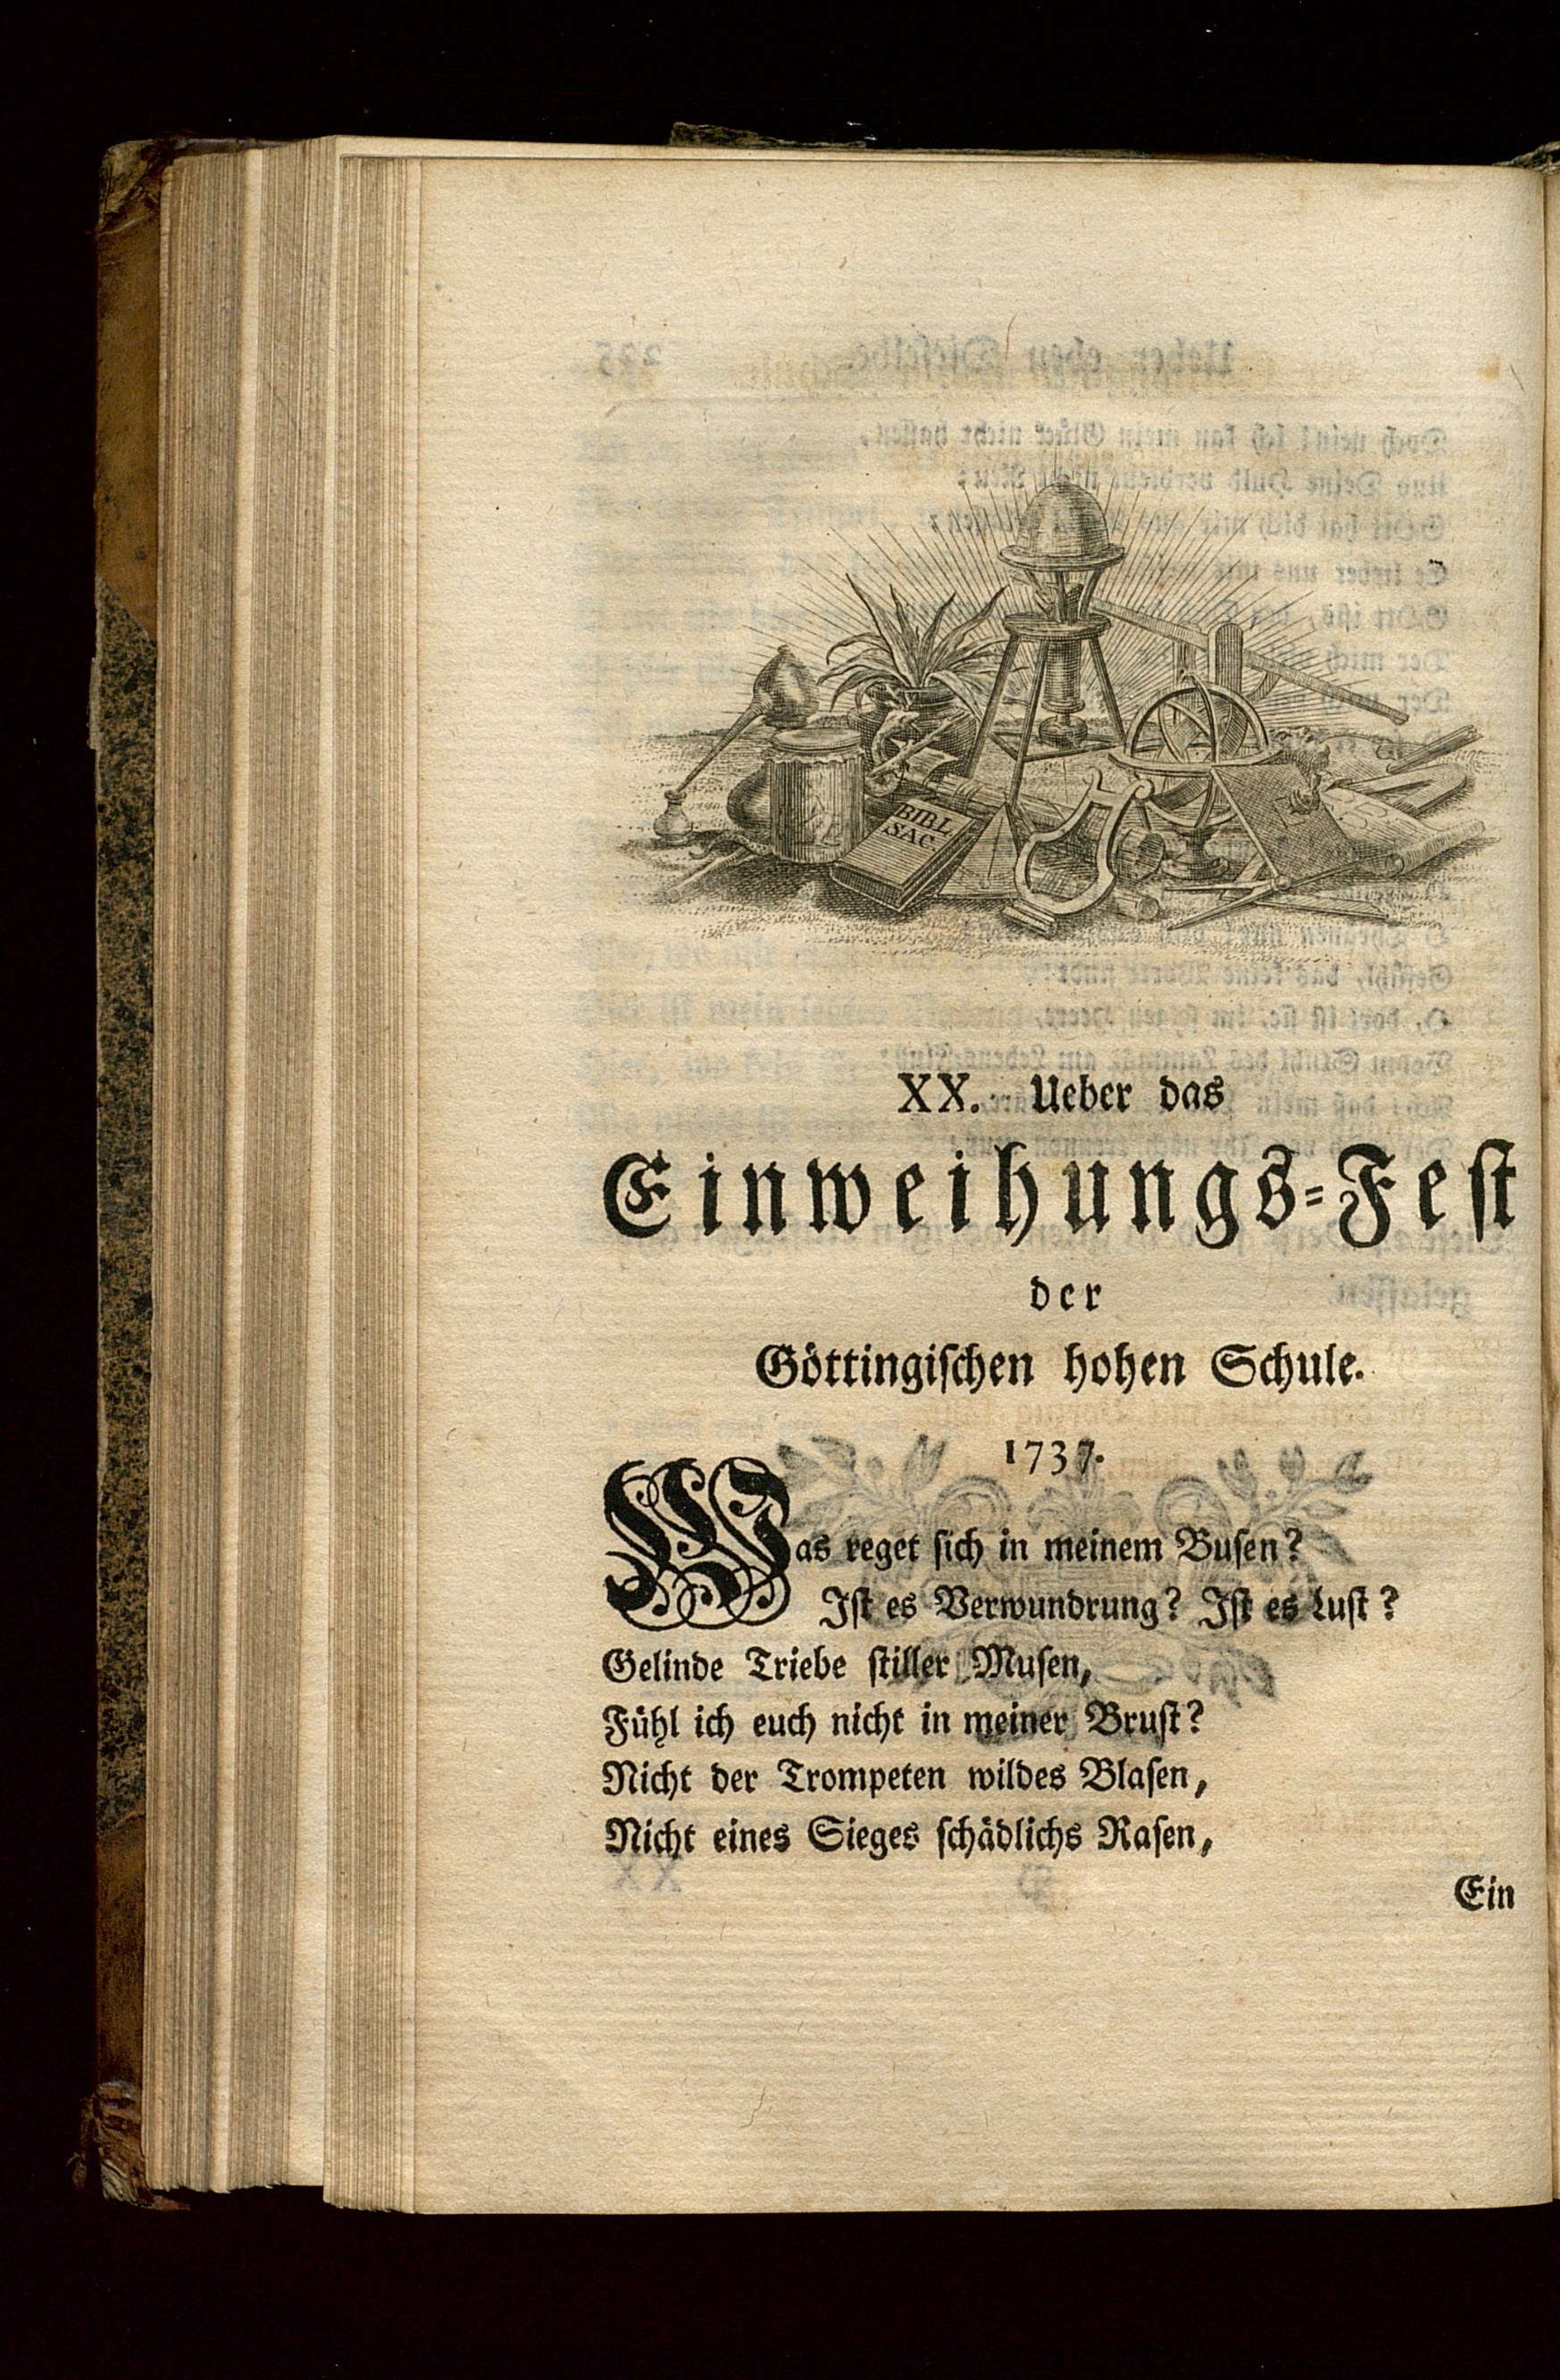 BIBL.
SAC.
XX. Ueber das
Einweihungs-Feſt
der
Göttingiſchen hohen Schule.
1737.
Was reget ſich in meinem Buſen?
Iſt es Verwundrung? Iſt es Luſt?
Gelinde Triebe ſtiller Muſen,
Fühl ich euch nicht in meiner Bruſt?
Nicht der Trompeten wildes Blaſen,
Nicht eines Sieges ſchädlichs Raſen,
Ein